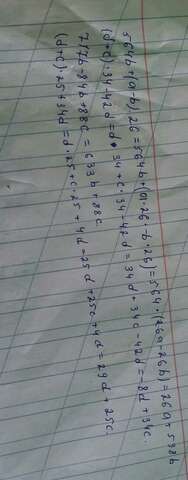 564b+(a-b)·26=564b+(a·26-b·26)=564·(26a-26b)=26a+538b
(d+c)·34-42d=d·34+c·34-42d=34d+34c-42d=-8d+34c.
717b-84b+88c=633b+88c
(d+c)·25+34d=d·25+c·25+4d=25d+25c+4d=29d+25c.